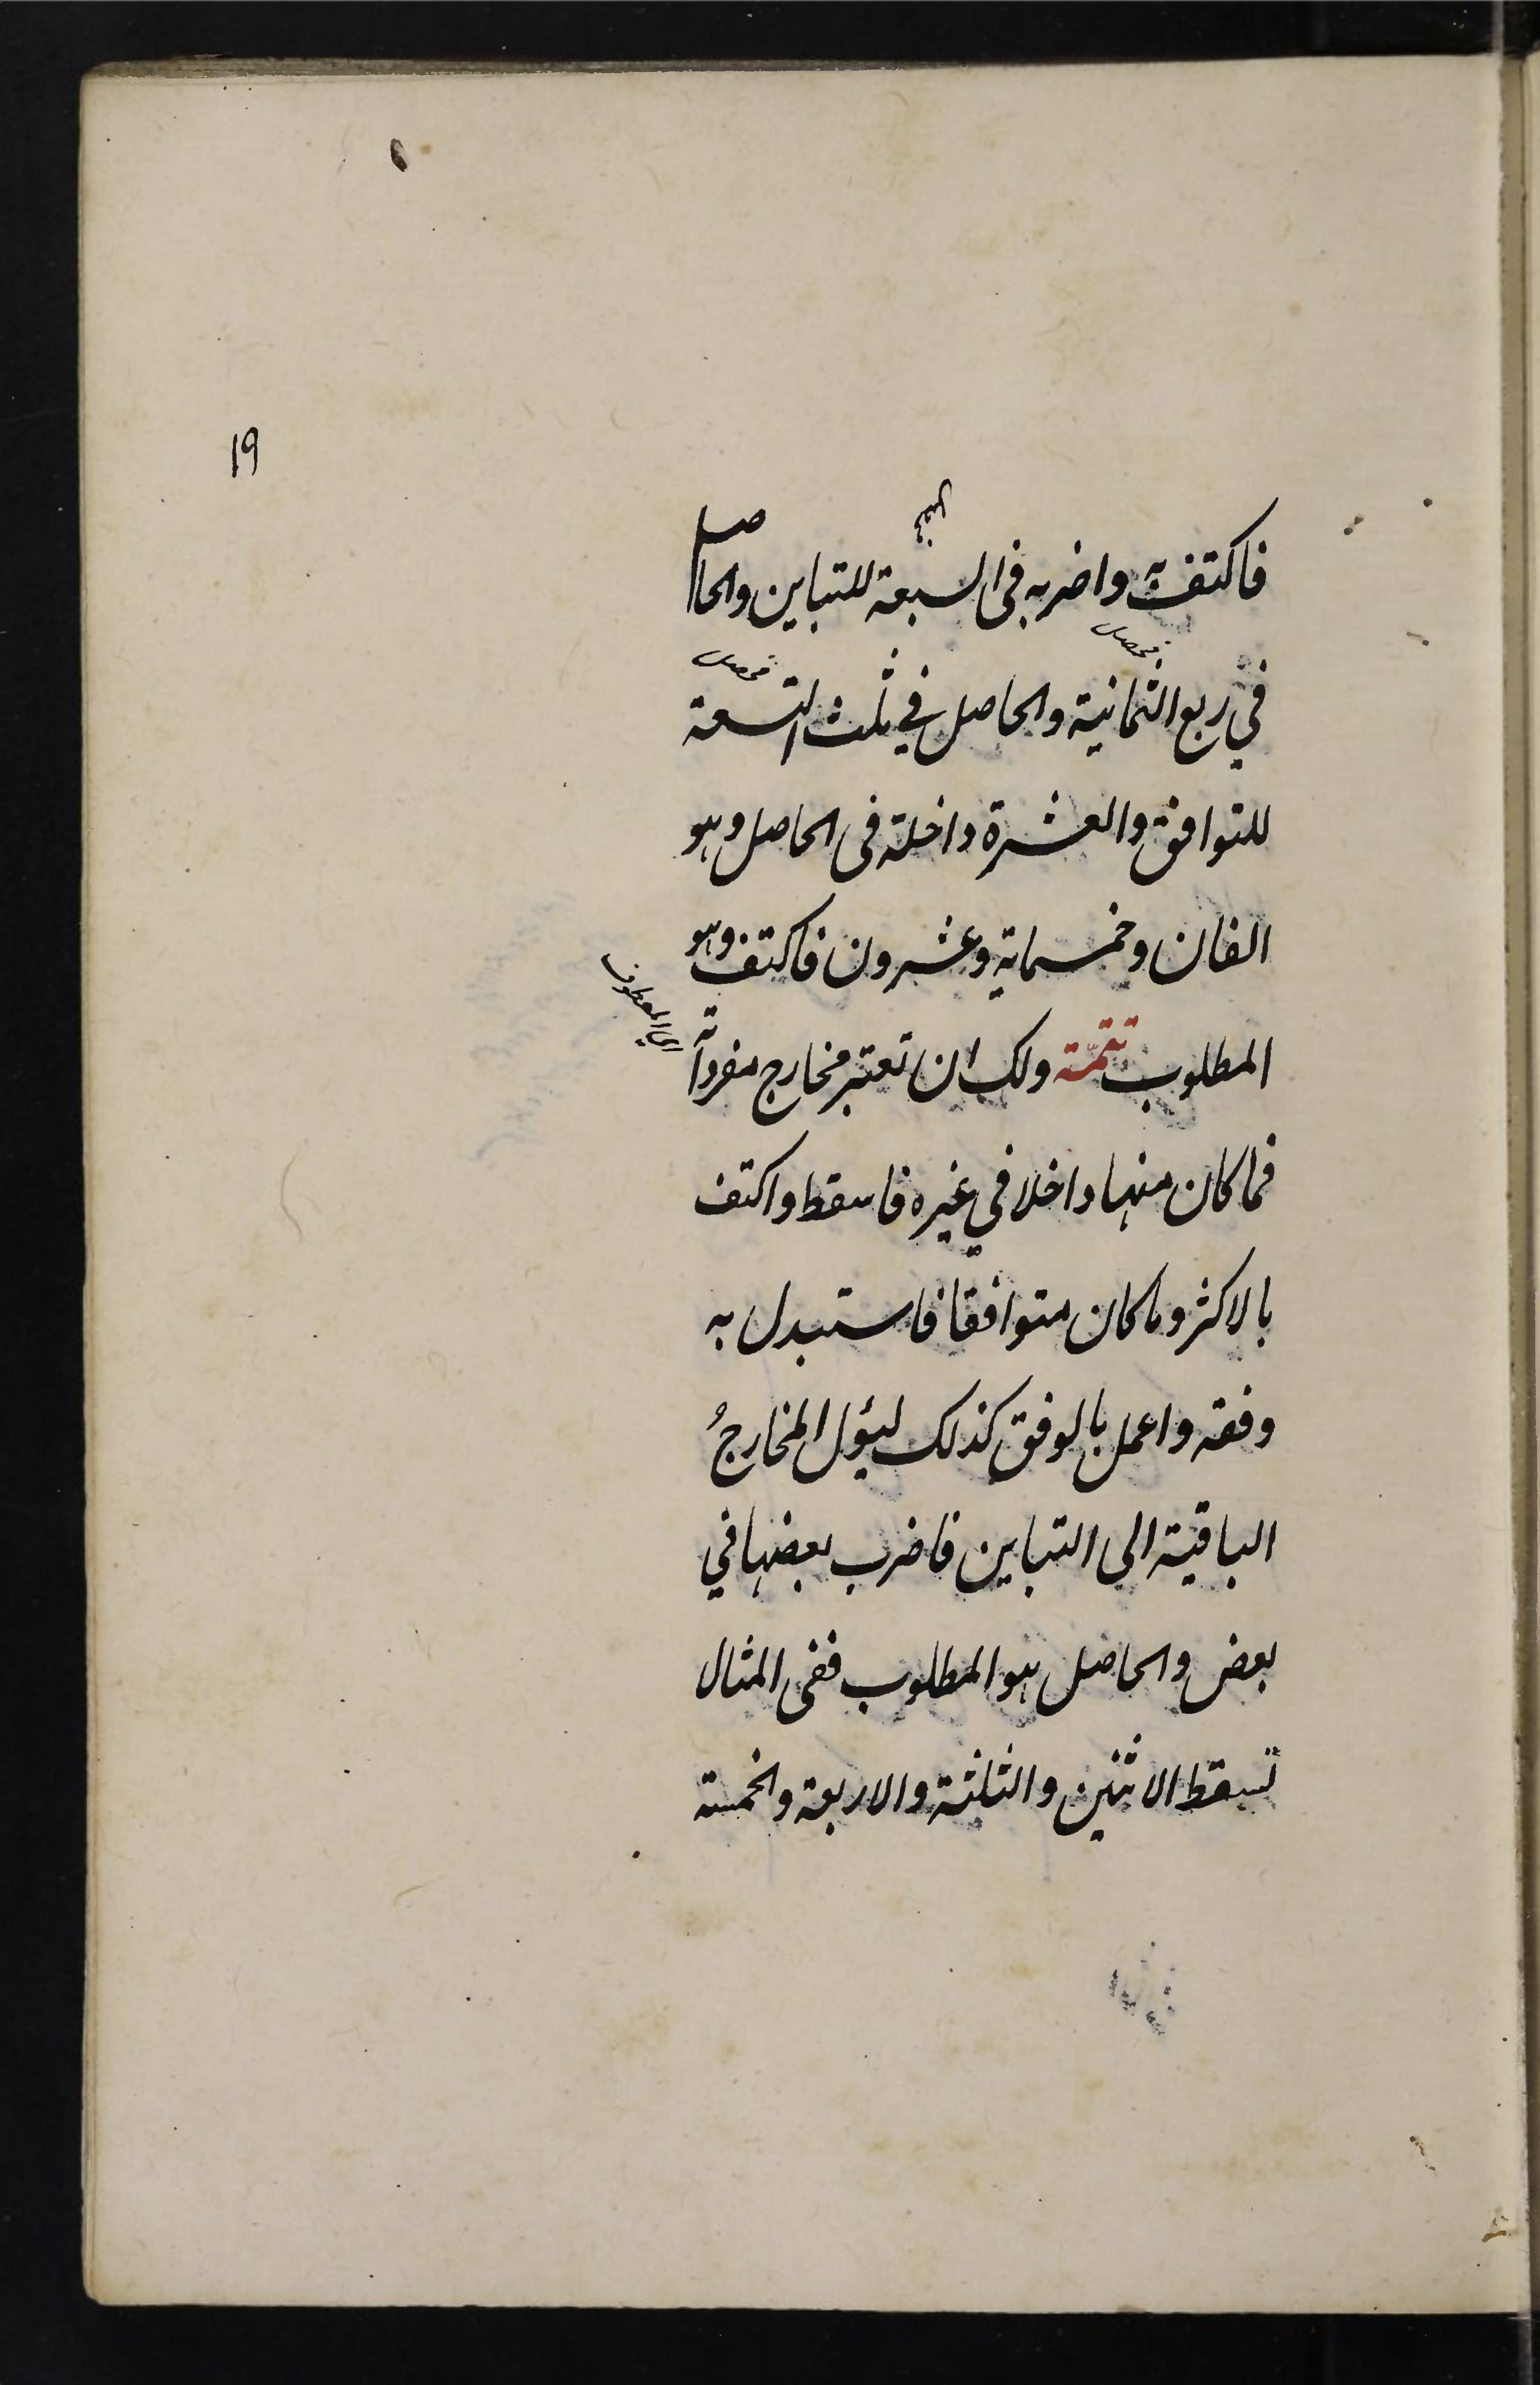 ١٩
فاكتف به واضربه فى السبعة للتباين والحاصل
فحصل
فحصل
في ربع الثمانية والحاصل في ثلث التسعة
فحصل
للتوافق والعشرة داخلة فى الحاصل وهو
الفان وخمسماية وعشرون فاكتف وهو
المطلوب تتمّة ولك ان تعتبر مخارج مفرداته
اى المعطوف
فما كان منها داخلا في غيره فاسقط واكتف
بالاكثر وما كان متوافقا فاستبدل به
وفقه واعمل بالوفق كذلك ليؤل المخارجُ
الباقية الى التباين فاضرب بعضها في
بعض والحاصل هو المطلوب ففى المثال
تسقط الاثنين والثلثة والاربعة والخمسة